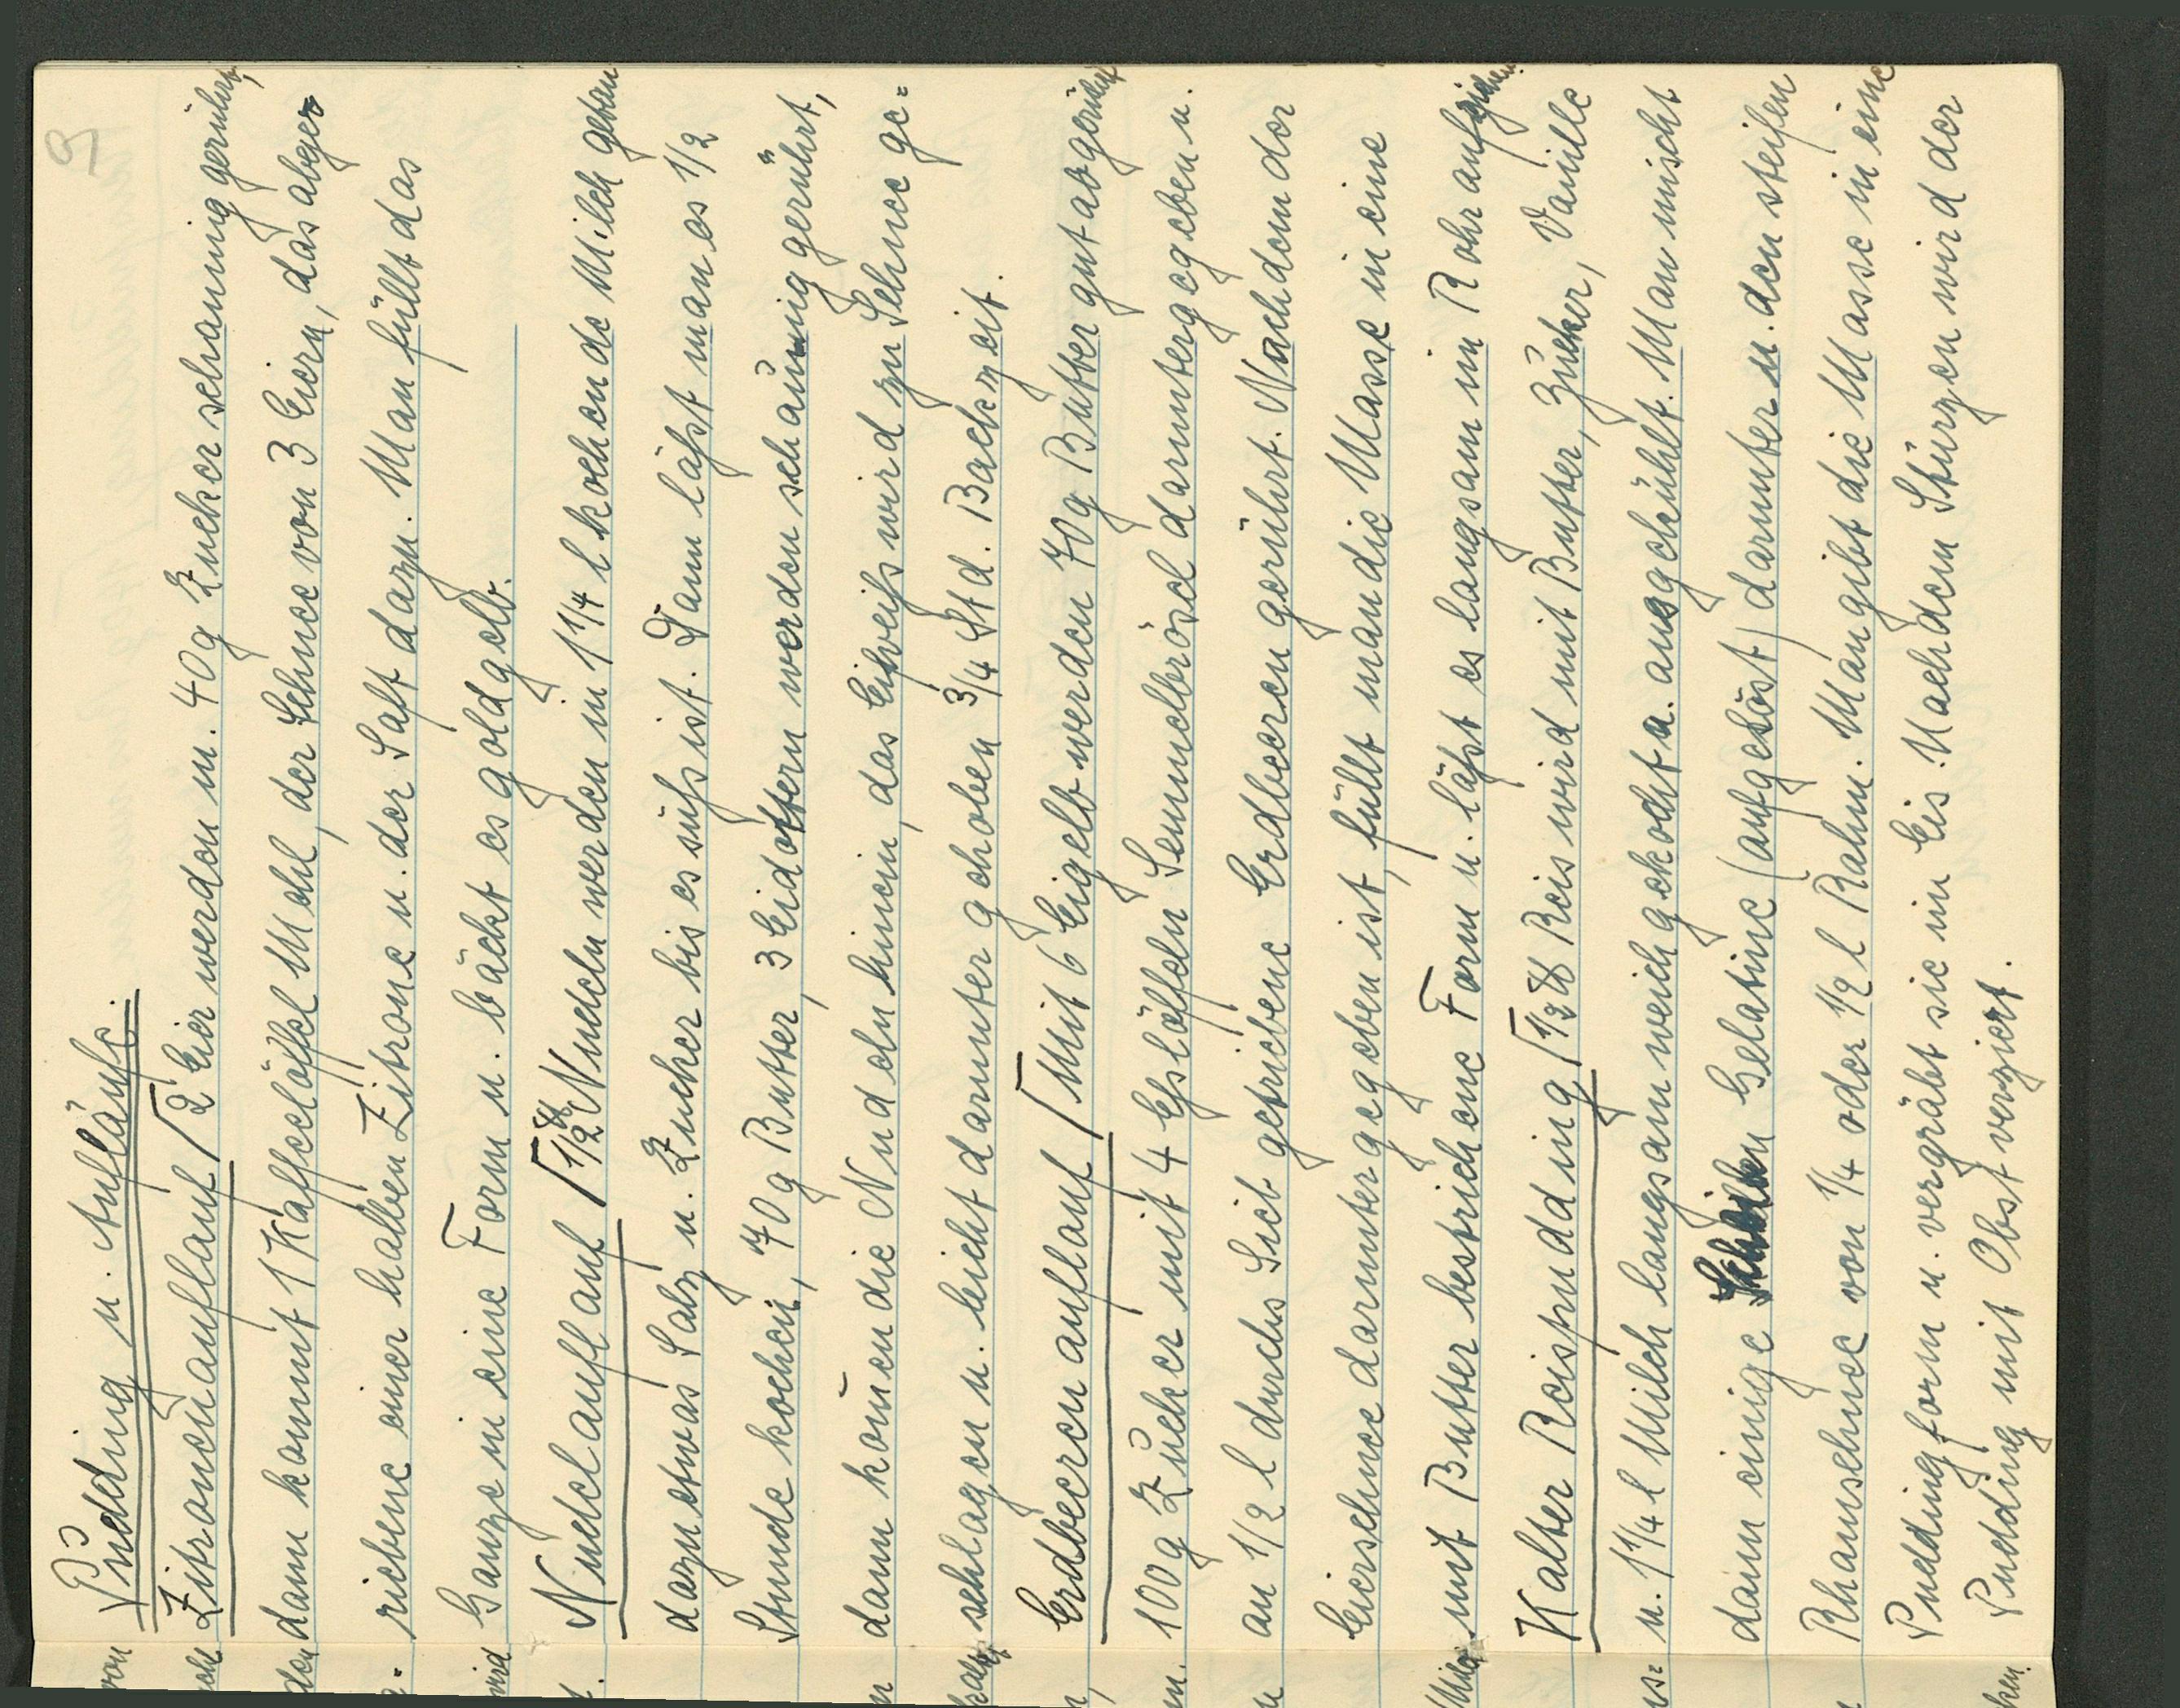 9
Pudding u. Aufläufe.
Zitronenauflauf / 2 Eier werden m. 40g Zucker schaumig gerührt,
dann kommt 1 Kaffeelöffel Mehl, der Schnee von 3 Eiern, das abge=
riebene einer halben Zitrone u. der Saft dazu. Man füllt das
Ganze in eine Form u. bäckt es goldgelb.
Nudelauflauf / 1/2 ℔ Nudeln werden in 1 1/4 l kochende Milch getan
dazu etwas Salz u. Zucker bis es süß ist. Dann läßt man es 1/2
Stunde kochen, 70g Butter, 3 Eidottern werden schaumig gerührt,
dann kom̄en die Nudeln hinein, das Eiweiß wird zu Schnee ge=
schlagen u. leicht darunter gehoben 3/4 Std. Backzeit.
Erdbeerenauflauf / Mit 6 Eigelb werden 70g Butter gut abgerührt
100g Zucker mit 4 Eßlöffeln Semmelbrösel daruntergegeben u.
an 1/2 l durchs Sieb getriebene Erdbeeren gerührt. Nachdem der
Eierschnee daruntergegeben ist, füllt man die Masse in eine
mit Butter bestrichene Form u. läßt es langsam im Rohr aufziehen.
Kalter Reispudding / 1/2 ℔ Reis wird mit Butter, Zucker, Vanille
u. 1 1/4 l Milch langsam weich gekocht u. ausgekühlt. Man mischt
dann einige Gelatine (aufgelöst) darunter u. den steifen
Rhamschnee von 1/4 oder 1/2 l Rahm. Man gibt die Masse in eine
Puddingform u. vergräbt sie im Eis. Nach dem Stürzen wird der
Pudding mit Obst verziert.
von
den
wird